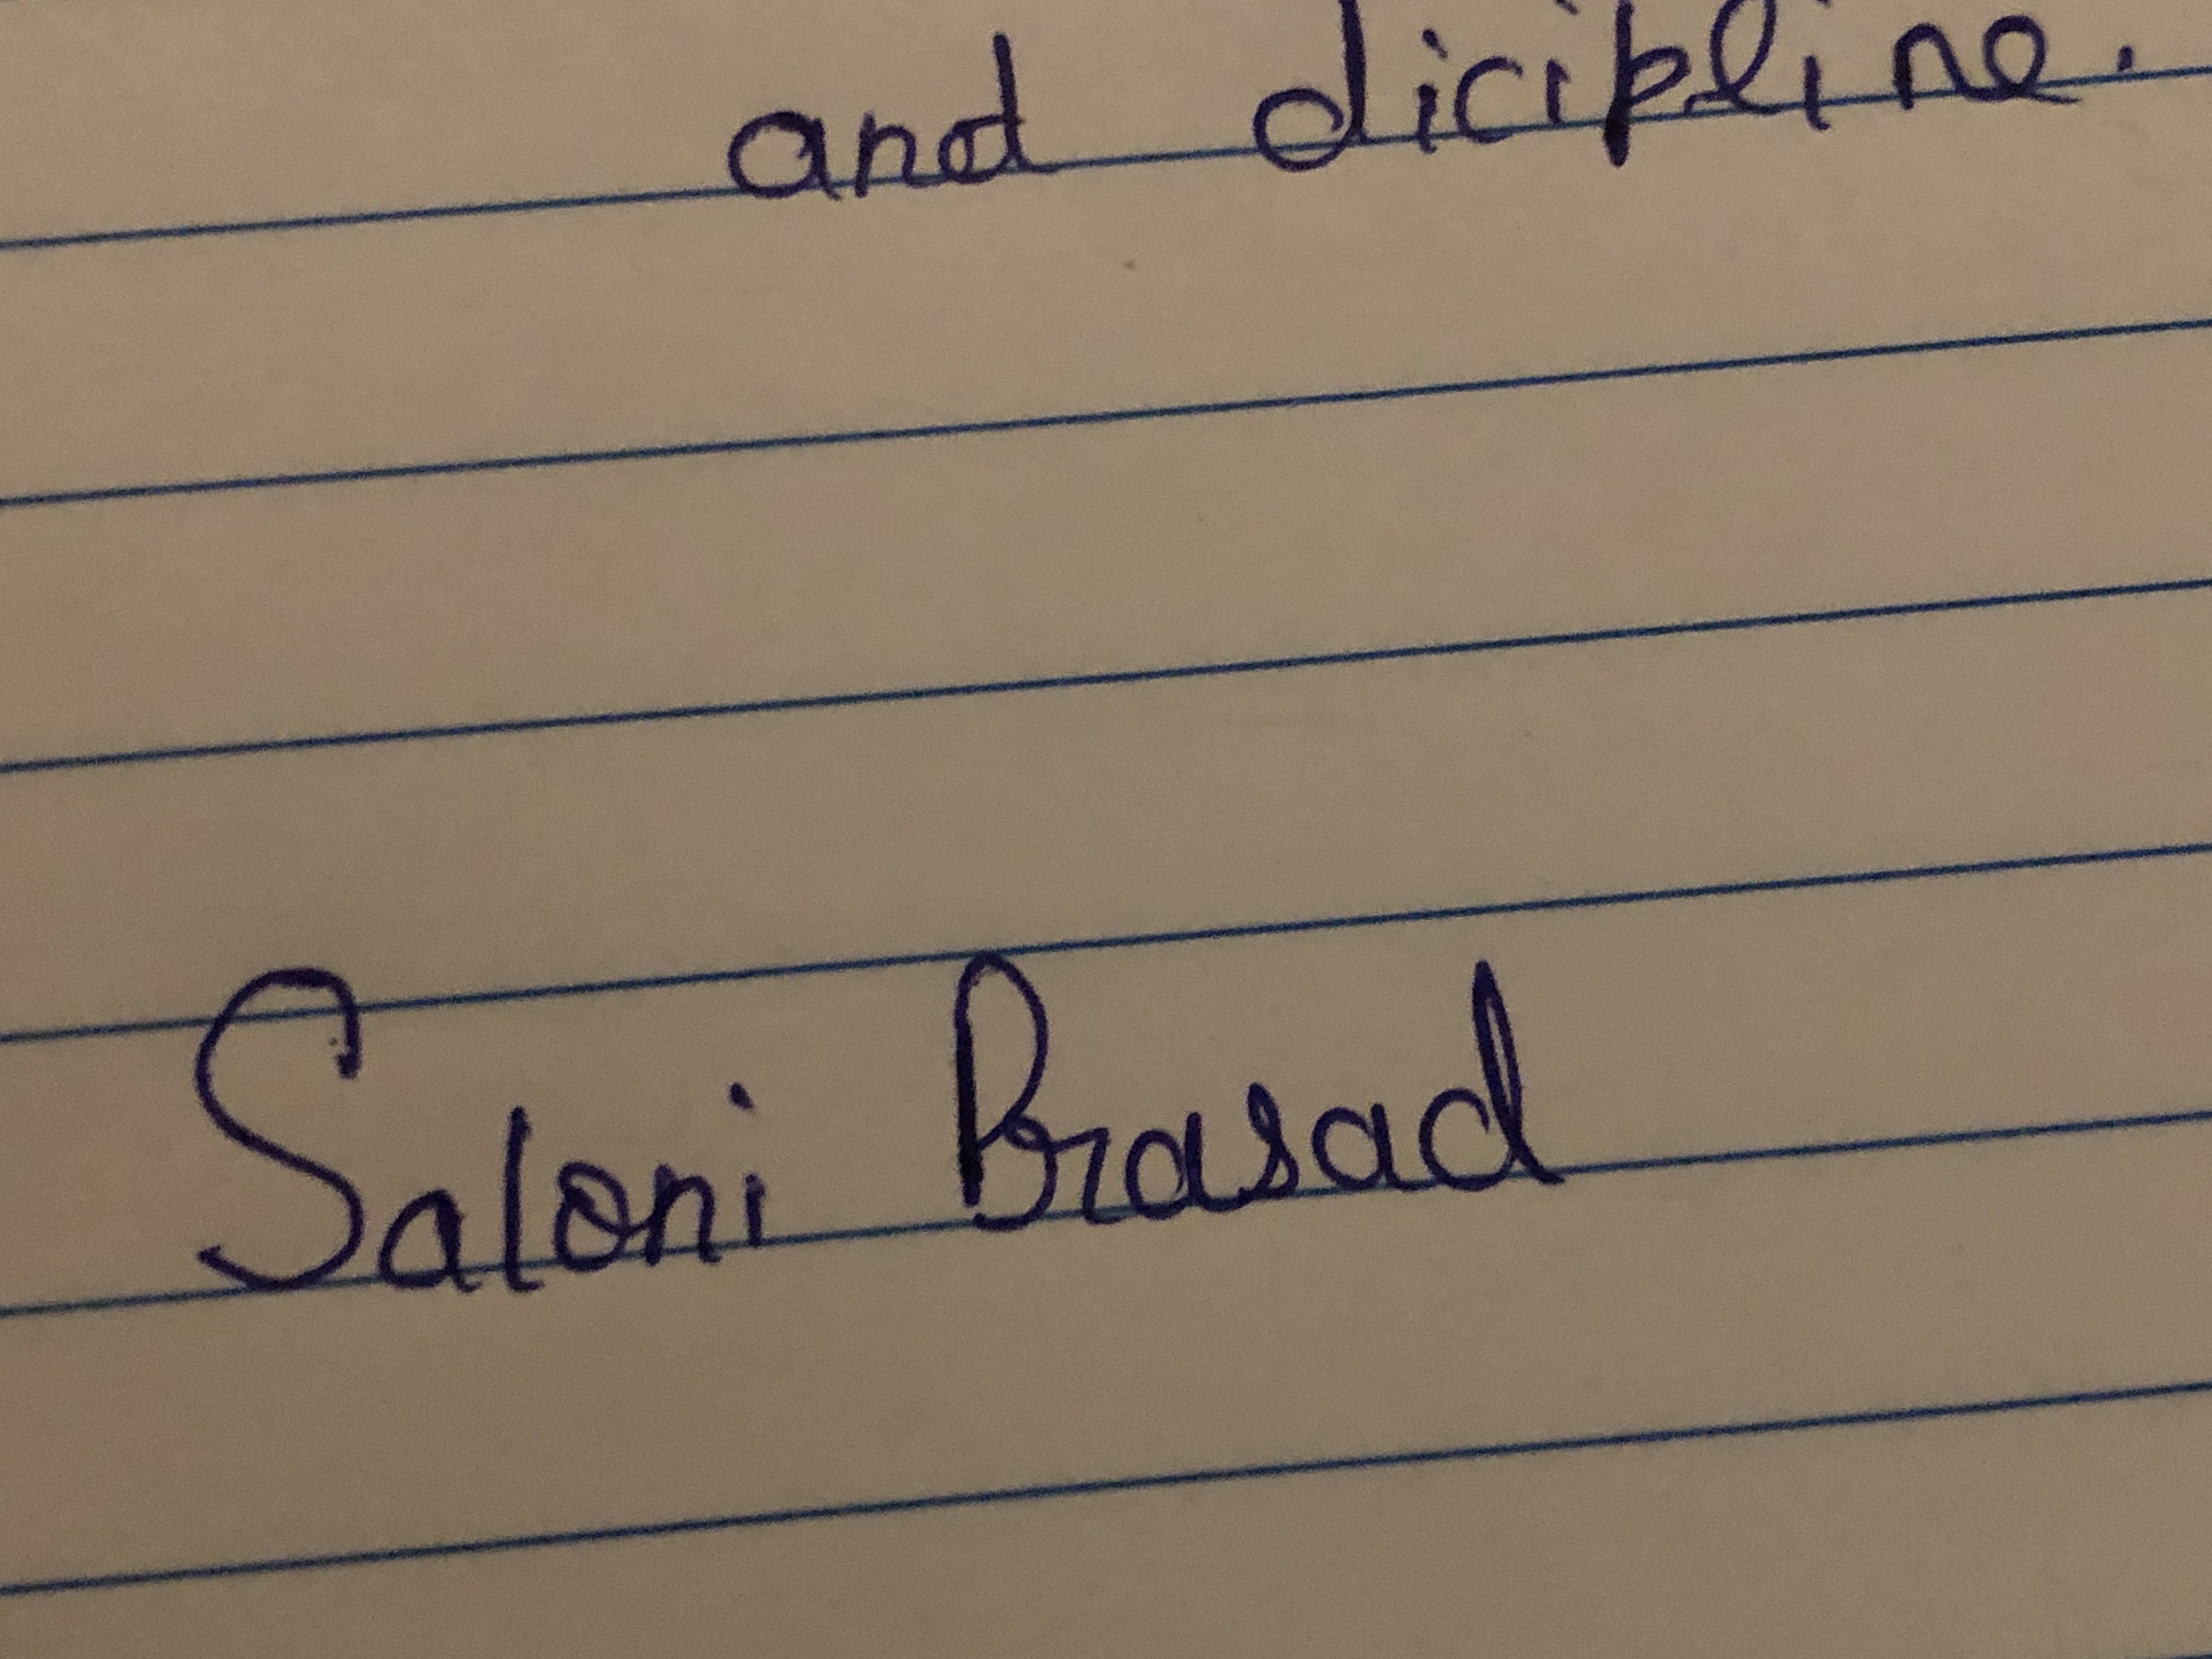 and dicipline.
Saloni Prasad